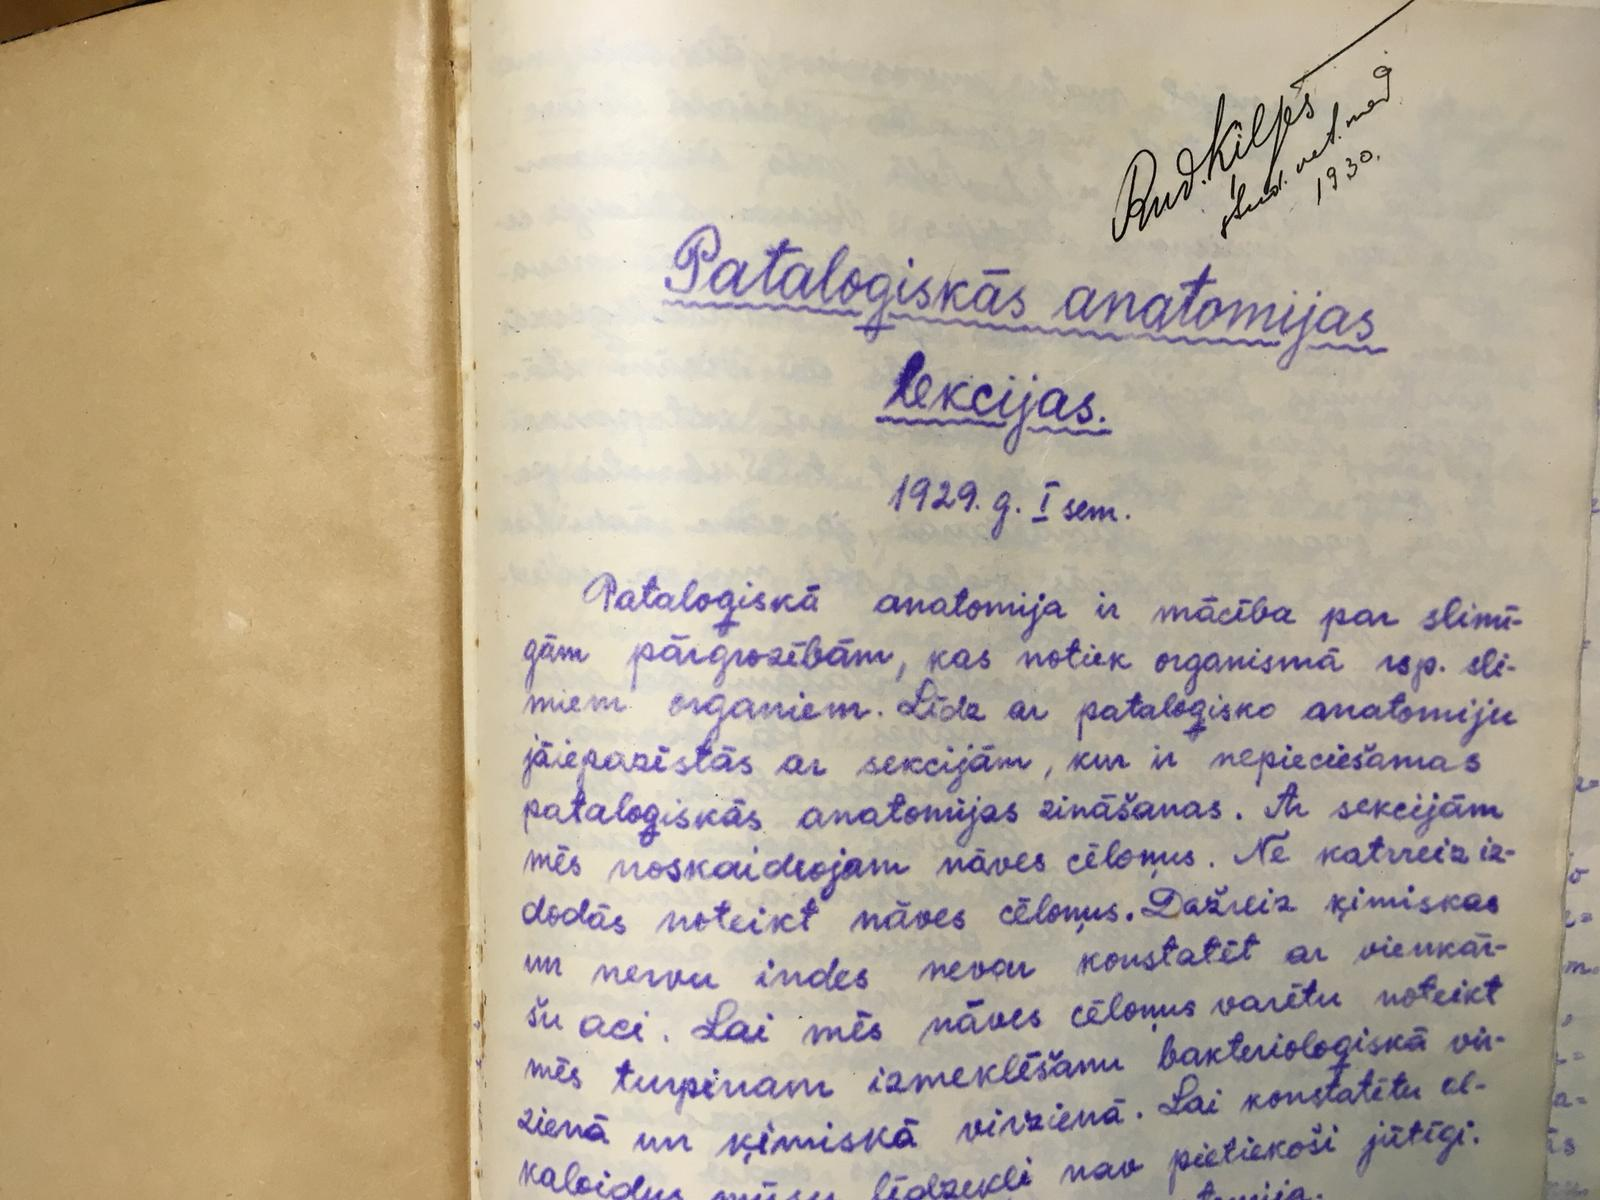 Rud. Kilpēs
stud. vet. med
1930.
Pataloģiskās anatomijas
lekcijas.
1929. g. I sem.
Pataloģiskā anatomija ir mācība par slimī-
gām pārgrozībām, kas notiek organismā rsp. sli-
miem orgāniem. Līdz ar pataloģisko anatomiju
jāiepazīstās ar sekcijām, kur ir nepieciešamas
pataloģiskās anatomijas zināšanas. Ar sekcijām
mēs noskaidrojam nāves cēloņus. Ne katrreiz iz-
dodās noteikt nāves cēloņus. Dažreiz ķimiskas
un nervu indes nevar konstatēt ar vienkār-
šu aci. Lai mēs nāves cēloņus varētu noteikt
mēs turpinam izmeklēšanu bakterioloģiskā vir-
zienā un ķimiskā virzienā. Lai konstatētu al-
kaloidus mūsu līdzekļi nav pietiekoši jūtīgi.